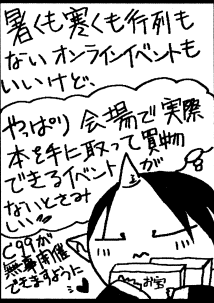 暑くも寒くも行列も
ないオンラインイベントも
いいけど、
やっぱり会場で実際
本を手に取って買物
できるイベントが
ないとさみ
しい
C99が
無事開催
できますように
お宝